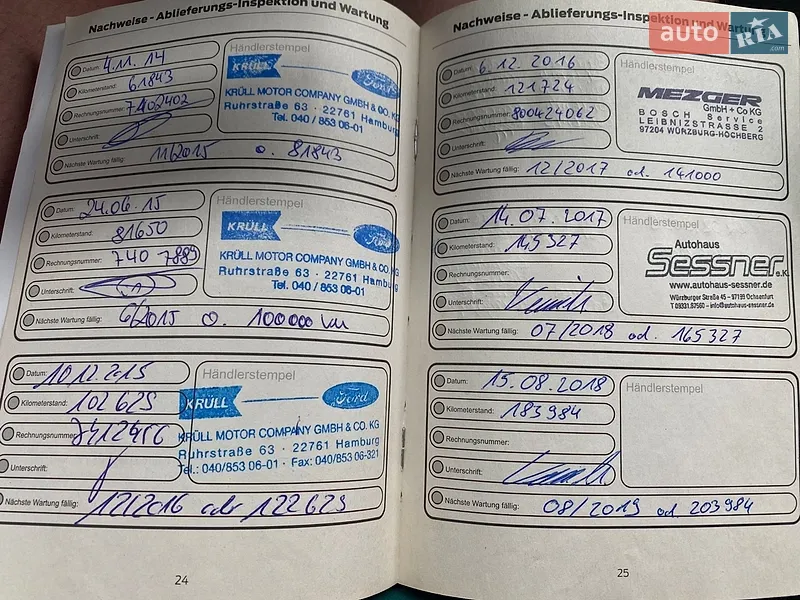 Nachweise - Ablieferungs-Inspektion und Wartung
Datum: 4.11.14
Kilometerstand: 61843
Rechnungsnummer: 7402402
Unterschrift:
Nächste Wartung fällig: 11/2015 o. 81843
Händlerstempel
KRÜLL Ford
KRÜLL MOTOR COMPANY GMBH & CO. KG
Ruhrstraße 63 · 22761 Hamburg
Tel. 040 / 853 06-01
Datum: 24.06.15
Kilometerstand: 81650
Rechnungsnummer: 740 7889
Unterschrift:
Nächste Wartung fällig: 6/2015 o. 100000 km
Händlerstempel
KRÜLL Ford
KRÜLL MOTOR COMPANY GMBH & CO. KG
Ruhrstraße 63 · 22761 Hamburg
Tel. 040 / 853 06-01
Datum: 10.12.2015
Kilometerstand: 102625
Rechnungsnummer:
Unterschrift:
Nächste Wartung fällig: 12/2016 oder 122625
Händlerstempel
KRÜLL Ford
KRÜLL MOTOR COMPANY GMBH & CO. KG
Ruhrstraße 63 · 22761 Hamburg
Tel.: 040/853 06-01 · Fax: 040/853 06-321
24
Nachweise - Ablieferungs-Inspektion und Wartung
Datum: 6.12.2016
Kilometerstand: 121724
Rechnungsnummer: 800424062
Unterschrift:
Nächste Wartung fällig: 12/2017 od. 141000
Händlerstempel
MEZGER
GmbH + Co KG
BOSCH Service
LEIBNIZSTRASSE 2
97204 WÜRZBURG-HÖCHBERG
Datum: 14.07.2017
Kilometerstand: 145327
Rechnungsnummer:
Unterschrift:
Nächste Wartung fällig: 07/2018 od. 165327
Händlerstempel
Autohaus
Sessner e.K.
www.autohaus-sessner.de
Würzburger Straße 45 – 97199 Ochsenfurt
T 09331.87560 – info@autohaus-sessner.de
Datum: 15.08.2018
Kilometerstand: 183984
Rechnungsnummer:
Unterschrift:
Nächste Wartung fällig: 08/2019 od. 203984
Händlerstempel
25
auto RIA .com